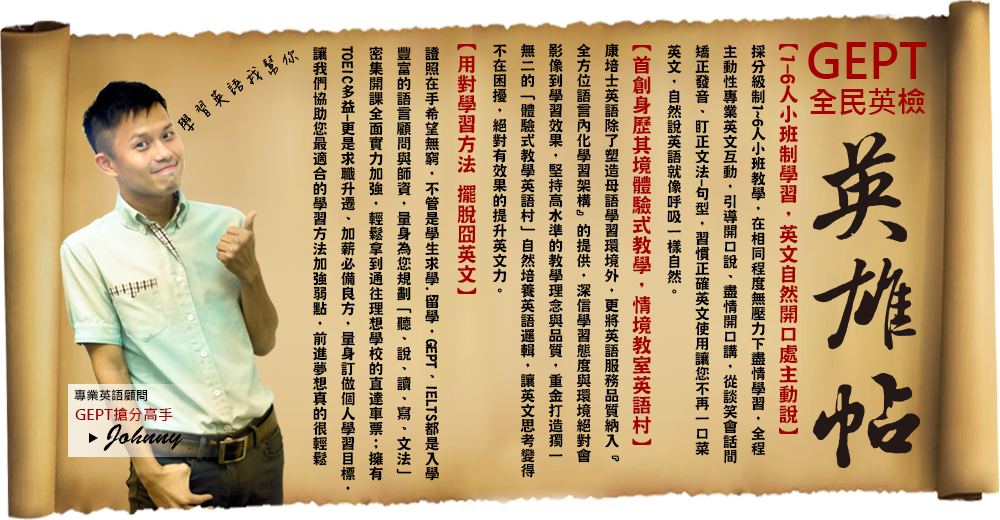 GEPT
全民英檢
英雄帖
【1-6人小班制學習，英文自然開口處主動說】
採分級制1~6人小班教學，在相同程度無壓力下盡情學習，全程
主動性專業英文互動，引導開口說、盡情開口講，從談笑會話間
矯正發音、盯正文法-句型，習慣正確英文使用讓您不再一口菜
英文，自然說英語就像呼吸一樣自然。
【首創身歷其境體驗式教學，情境教室英語村】
康培士英語除了塑造母語學習環境外，更將英語服務品質納入『
全方位語言內化學習架構』的提供，深信學習態度與環境絕對會
影像到學習效果，堅持高水準的教學理念與品質，重金打造獨一
無二的「體驗式教學英語村」自然培養英語邏輯，讓英文思考變得
不在困擾，絕對有效果的提升英文力。
【用對學習方法 擺脫囧英文】
證照在手希望無窮，不管是學生求學，留學，GEPT、IELTS都是入學
豐富的語言顧問與師資，量身為您規劃「聽、說、讀、寫、文法」
密集開課全面實力加強，輕鬆拿到通往理想學校的直達車票；擁有
TOEIC多益-更是求職升遷、加薪必備良方，量身訂做個人學習目標，
讓我們協助您最適合的學習方法加強弱點，前進夢想真的很輕鬆
學習英語我幫你
專業英語顧問
GEPT搶分高手
Johnny